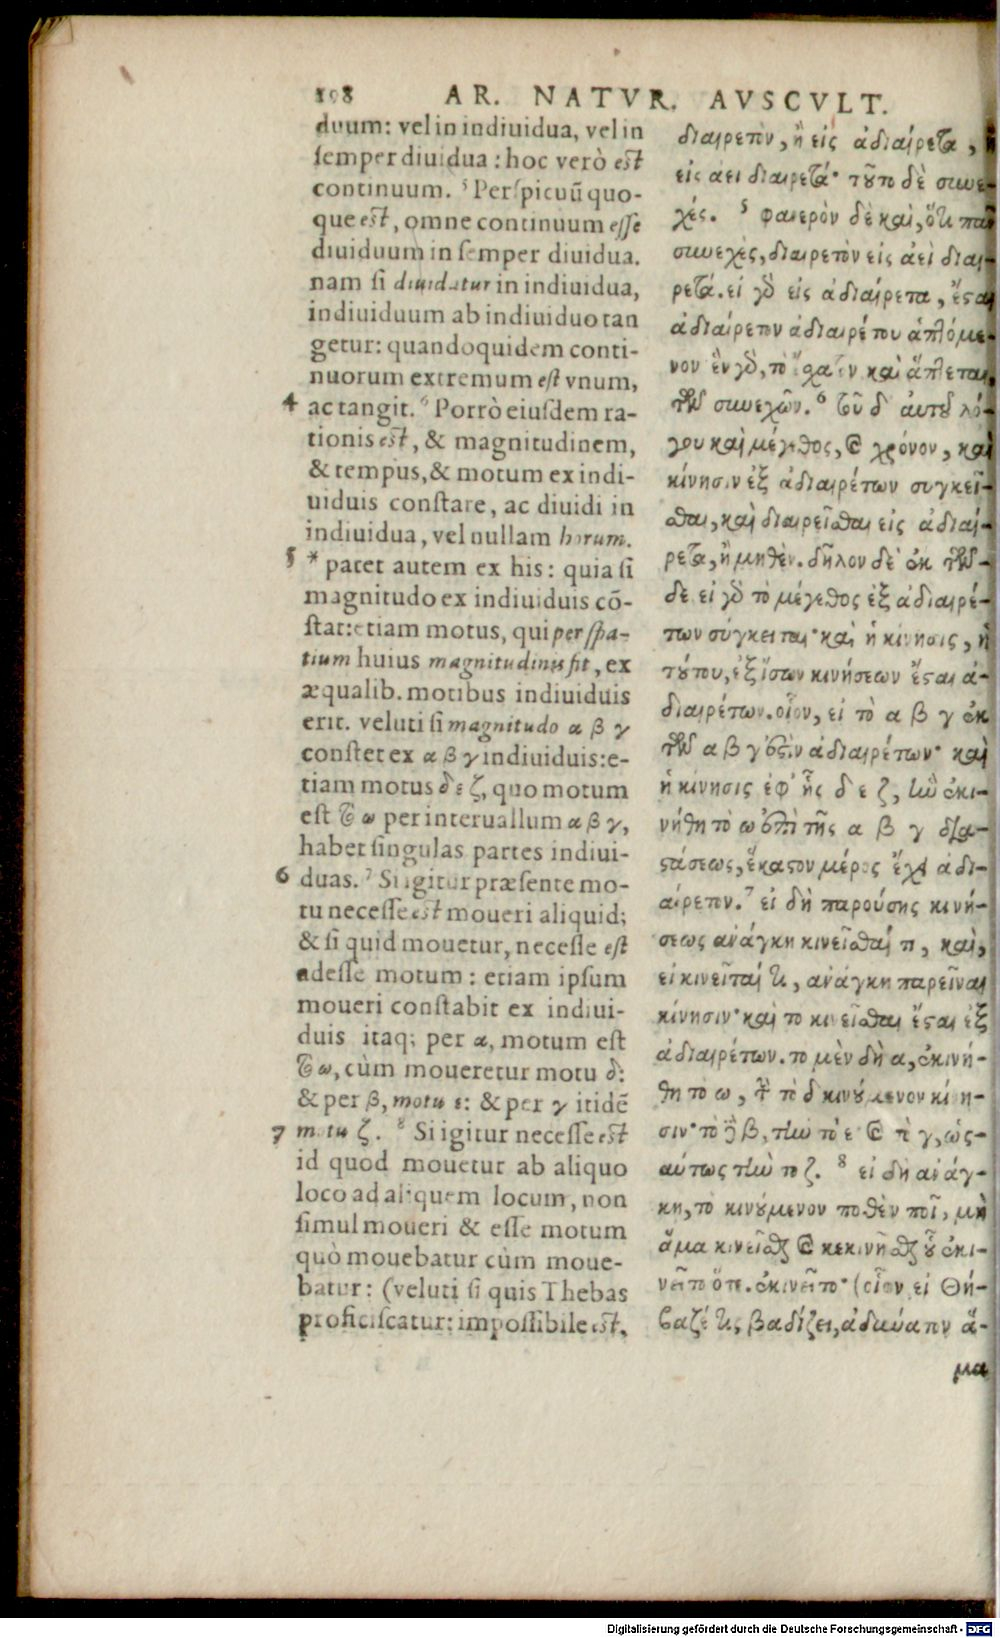 198 AR. NATVR. AVSCVLT.
duum: vel in indiuidua, vel in
semper diuidua : hoc verò est
continuum. ⁵ Perspicuũ quo-
que est, omne continuum esse
diuiduum in semper diuidua.
nam si diuidatur in indiuidua,
indiuiduum ab indiuiduo tan
getur: quandoquidem conti-
nuorum extremum est vnum,
4 ac tangit. ⁶ Porrò eiusdem ra-
tionis est, & magnitudinem,
& tempus, & motum ex indi-
uiduis constare, ac diuidi in
indiuidua, vel nullam horum.
5 * patet autem ex his: quia si
magnitudo ex indiuiduis cõ-
stat: etiam motus, qui per spa-
tium huius magnitudinis fit, ex
æqualib. motibus indiuiduis
erit. veluti si magnitudo α β γ
constet ex α β γ indiuiduis: e-
tiam motus δ ε ζ, quo motum
est τὸ ω per interuallum α β γ,
habet singulas partes indiui-
6 duas. ⁷ Si igitur præsente mo-
tu necesse est moueri aliquid;
& si quid mouetur, necesse est
adesse motum : etiam ipsum
moueri constabit ex indiui-
duis itaq; per α, motum est
τὸ ω, cùm moueretur motu δ:
& per β, motu ε: & per γ itidẽ
7 motu ζ. ⁸ Si igitur necesse est
id quod mouetur ab aliquo
loco ad aliquem locum, non
simul moueri & esse motum
quò mouebatur cùm moue-
batur: (veluti si quis Thebas
proficiscatur: impossibile est,
διαιρετὸν, ἢ εἰς ἀδιαίρετα, ἢ
εἰς ἀεὶ διαιρετά· τοῦτο δὲ συνε-
χές. ⁵ φανερὸν δὲ καὶ, ὅτι πᾶν
συνεχὲς, διαιρετὸν εἰς ἀεὶ διαι-
ρετά. εἰ γὰρ εἰς ἀδιαίρετα, ἔσται
ἀδιαίρετον ἀδιαιρέτου ἁπτόμε-
νον ἓν γὰρ, τὸ ἔσχατον καὶ ἅπτεται,
τῶν συνεχῶν. ⁶ τοῦ δ' αὐτοῦ λό-
γου καὶ μέγεθος, καὶ χρόνον, καὶ
κίνησιν ἐξ ἀδιαιρέτων συγκεῖ-
σθαι, καὶ διαιρεῖσθαι εἰς ἀδιαί-
ρετα, ἢ μηθέν. δῆλον δὲ ἐκ τῶν-
δε εἰ γὰρ τὸ μέγεθος ἐξ ἀδιαιρέ-
των σύγκειται· καὶ ἡ κίνησις, ἡ
τούτου, ἐξ ἴσων κινήσεων ἔσται ἀ-
διαιρέτων. οἷον, εἰ τὸ α β γ ἐκ
τῶν α β γ ἐστὶν ἀδιαιρέτων· καὶ
ἡ κίνησις ἐφ' ἧς δ ε ζ, ἣν ἐκι-
νήθη τὸ ω ἐπὶ τῆς α β γ δια-
στάσεως, ἕκαστον μέρος ἔχει ἀδι-
αίρετον. ⁷ εἰ δὴ παρούσης κινή-
σεως ἀνάγκη κινεῖσθαί τι, καὶ,
εἰ κινεῖταί τι, ἀνάγκη παρεῖναι
κίνησιν· καὶ τὸ κινεῖσθαι ἔσται ἐξ
ἀδιαιρέτων. τὸ μὲν δὴ α, ἐκινή-
θη τὸ ω, τὴν τὸ δ κινούμενον κίνη-
σιν· τὸ δὲ β, τὴν τὸ ε καὶ τὸ γ, ὡς-
αύτως τὴν τὸ ζ. ⁸ εἰ δὴ ἀνάγ-
κη, τὸ κινούμενον ποθέν ποῖ, μὴ
ἅμα κινεῖσθαι καὶ κεκινῆσθαι οὗ ἐκι-
νεῖτο ὅτε. ἐκινεῖτο· (οἷον εἰ Θή-
βαζέ τι, βαδίζει, ἀδύνατον ἅ-
μα
Digitalisierung gefördert durch die Deutsche Forschungsgemeinschaft - DFG